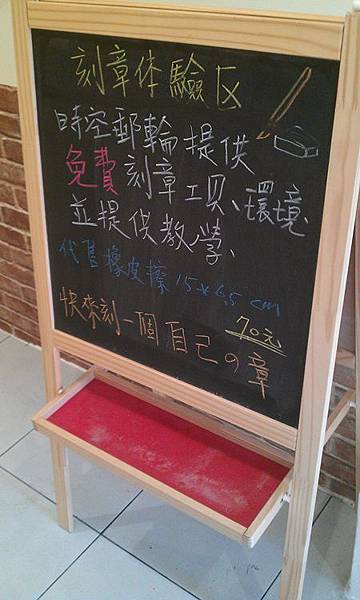 刻章体驗区
時空郵輪提供
免費刻章工具、環境
並提供教學、
代售橡皮擦15×6.5cm
70元
快來刻一個自己の章